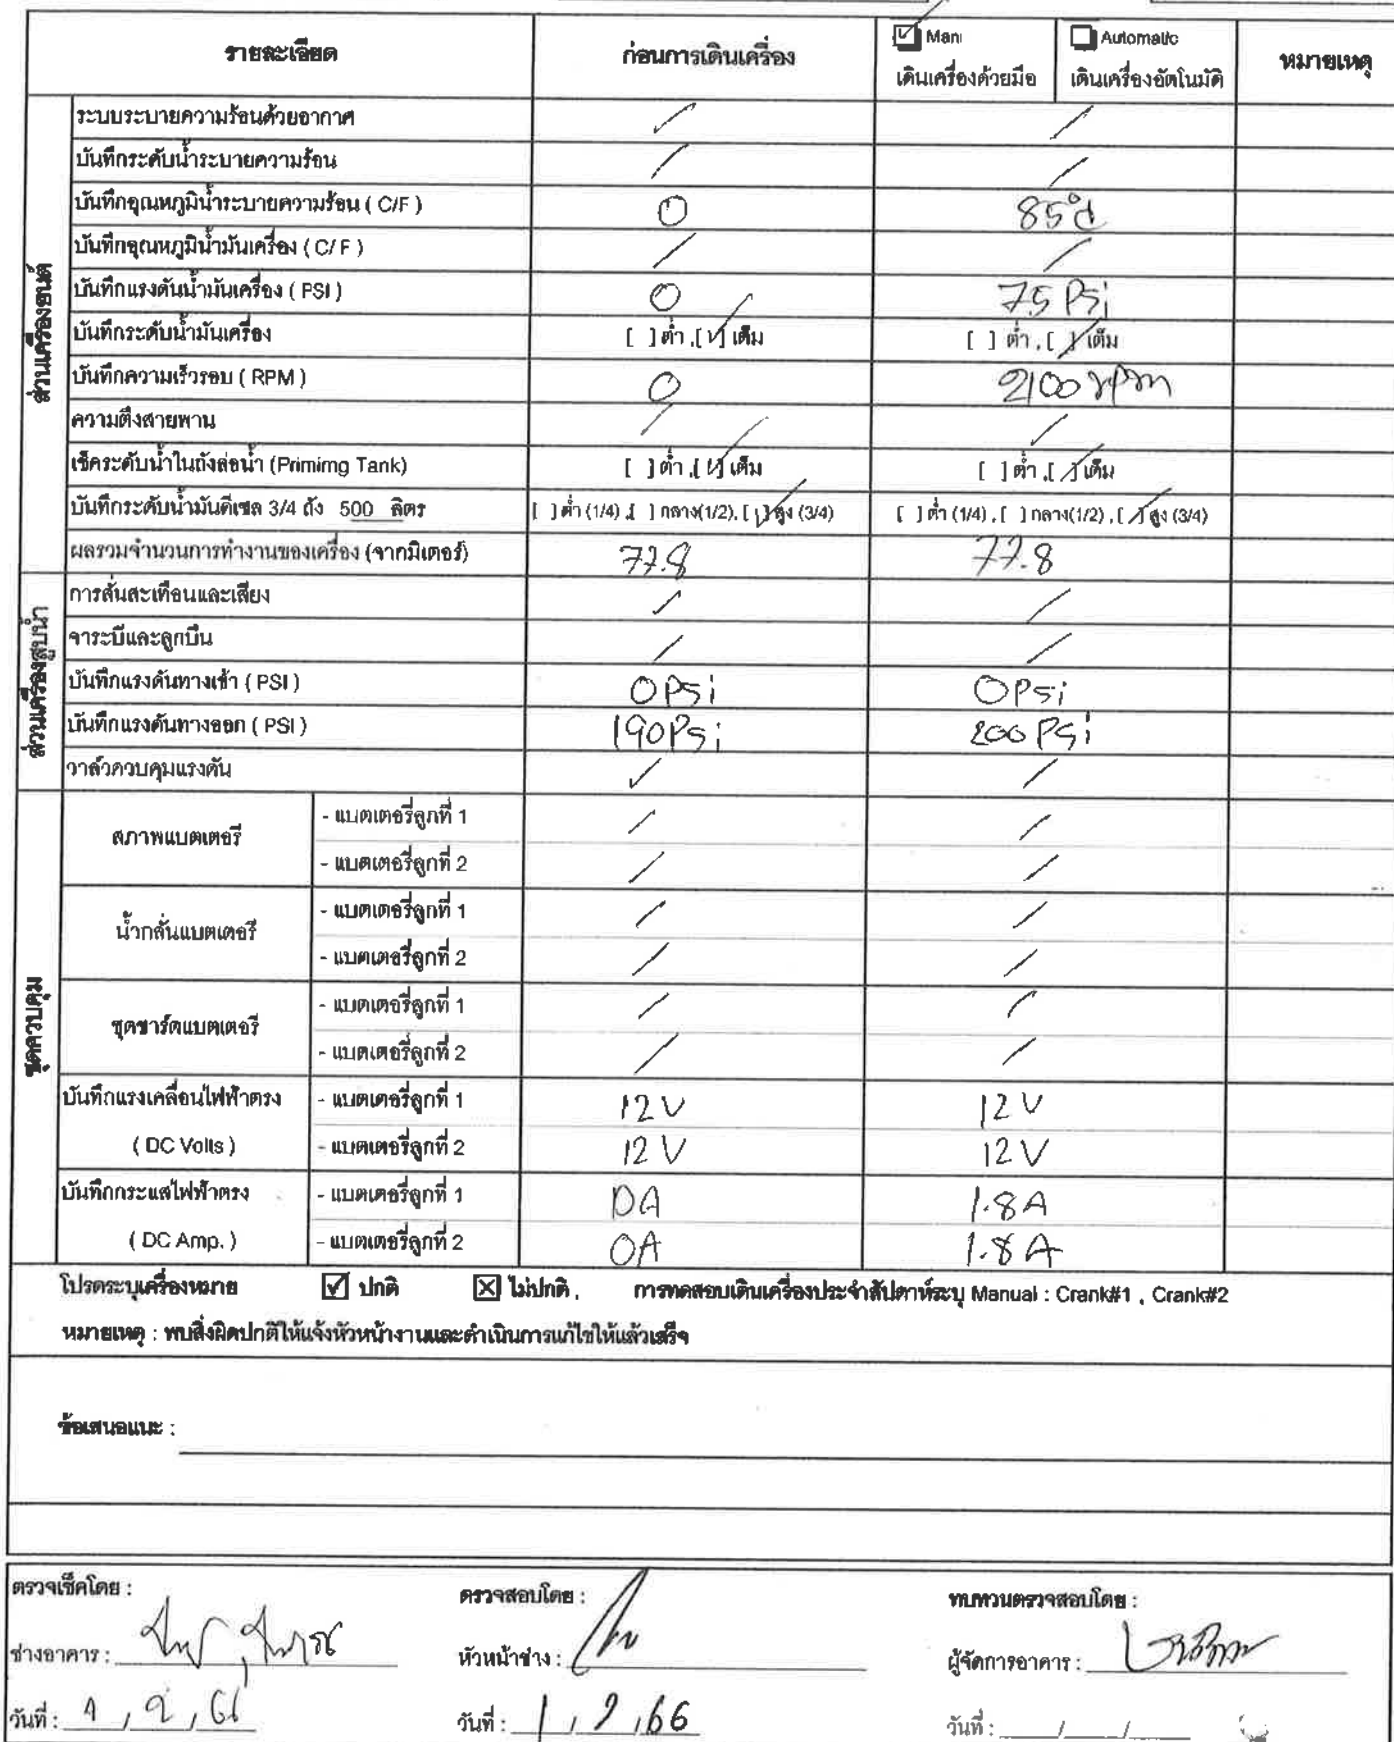 รายละเอียด ก่อนการเดินเครื่อง ☑ Man ☐ Automatic หมายเหตุ
เดินเครื่องด้วยมือ เดินเครื่องอัตโนมัติ
ส่วนเครื่องยนต์
ระบบระบายความร้อนด้วยอากาศ / /
บันทึกระดับน้ำระบายความร้อน / /
บันทึกอุณหภูมิน้ำระบายความร้อน ( C/F ) 0 85°c
บันทึกอุณหภูมิน้ำมันเครื่อง ( C/ F ) / /
บันทึกแรงดันน้ำมันเครื่อง ( PSI ) 0 75 Psi
บันทึกระดับน้ำมันเครื่อง [ ] ต่ำ , [ ✓ ] เต็ม [ ] ต่ำ , [ / ] เต็ม
บันทึกความเร็วรอบ ( RPM ) 0 2100 rpm
ความตึงสายพาน / /
เช็คระดับน้ำในถังล่อน้ำ (Primimg Tank) [ ] ต่ำ , [ ✓ ] เต็ม [ ] ต่ำ , [ / ] เต็ม
บันทึกระดับน้ำมันดีเซล 3/4 ถัง 500 ลิตร [ ] ต่ำ (1/4) , [ ] กลาง(1/2), [ ✓ ] สูง (3/4) [ ] ต่ำ (1/4) , [ ] กลาง(1/2) , [ / ] สูง (3/4)
ผลรวมจำนวนการทำงานของเครื่อง (จากมิเตอร์) 77.8 77.8
ส่วนเครื่องสูบน้ำ
การสั่นสะเทือนและเสียง / /
จาระบีและลูกปืน / /
บันทึกแรงดันทางเข้า ( PSI ) 0 Psi 0 Psi
บันทึกแรงดันทางออก ( PSI ) 190 Psi 200 Psi
วาล์วควบคุมแรงดัน / /
ชุดควบคุม
สภาพแบตเตอรี่ - แบตเตอรี่ลูกที่ 1 / /
- แบตเตอรี่ลูกที่ 2 / /
น้ำกลั่นแบตเตอรี่ - แบตเตอรี่ลูกที่ 1 / /
- แบตเตอรี่ลูกที่ 2 / /
ชุดชาร์ตแบตเตอรี่ - แบตเตอรี่ลูกที่ 1 / /
- แบตเตอรี่ลูกที่ 2 / /
บันทึกแรงเคลื่อนไฟฟ้าตรง - แบตเตอรี่ลูกที่ 1 12 V 12 V
( DC Volts ) - แบตเตอรี่ลูกที่ 2 12 V 12 V
บันทึกกระแสไฟฟ้าตรง - แบตเตอรี่ลูกที่ 1 0A 1.8 A
( DC Amp. ) - แบตเตอรี่ลูกที่ 2 0A 1.8 A
โปรดระบุเครื่องหมาย ☑ ปกติ ☒ ไม่ปกติ , การทดสอบเดินเครื่องประจำสัปดาห์ระบุ Manual : Crank#1 , Crank#2
หมายเหตุ : พบสิ่งผิดปกติให้แจ้งหัวหน้างานและดำเนินการแก้ไขให้แล้วเสร็จ
ข้อเสนอแนะ :
ตรวจเช็คโดย : ตรวจสอบโดย : ทบทวนตรวจสอบโดย :
ช่างอาคาร : หัวหน้าช่าง : ผู้จัดการอาคาร :
วันที่ : 1 / 2 / 66 วันที่ : 1 / 2 / 66 วันที่ : / /